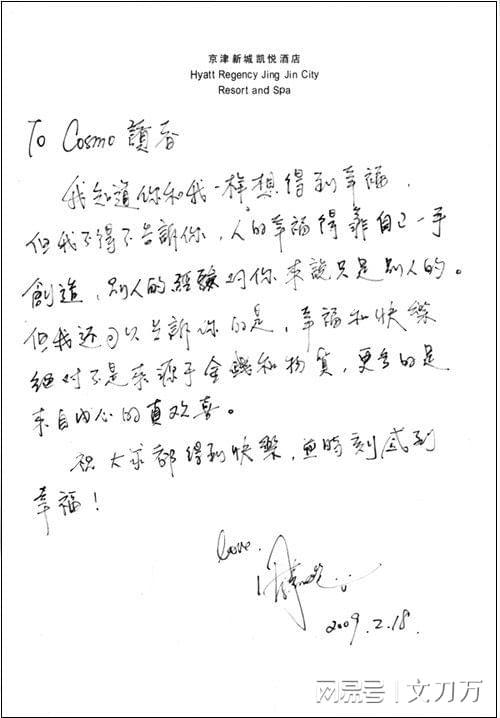 京津新城凯悦酒店
Hyatt Regency Jing Jin City
Resort and Spa
To Cosmo 讀者
我知道你和我一样想得到幸福，
但我不得不告訴你，人的幸福得靠自己一手
創造，别人的經驗对你来說只是别人的。
但我还可以告訴你的是，幸福和快樂
绝对不是来源于金錢和物質，更多的是
来自内心的真欢喜。
祝大家都得到快樂，並時刻感到
幸福！
love.
2009.2.18.
网易号 文刀万